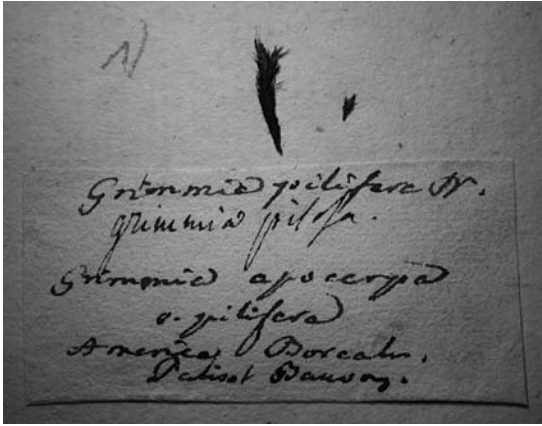 Grimmia pilifera N.
grimmia pilosa.
Grimmia apocarpa
v. pilifera
America Borealis.
Palisot Beauvoy.